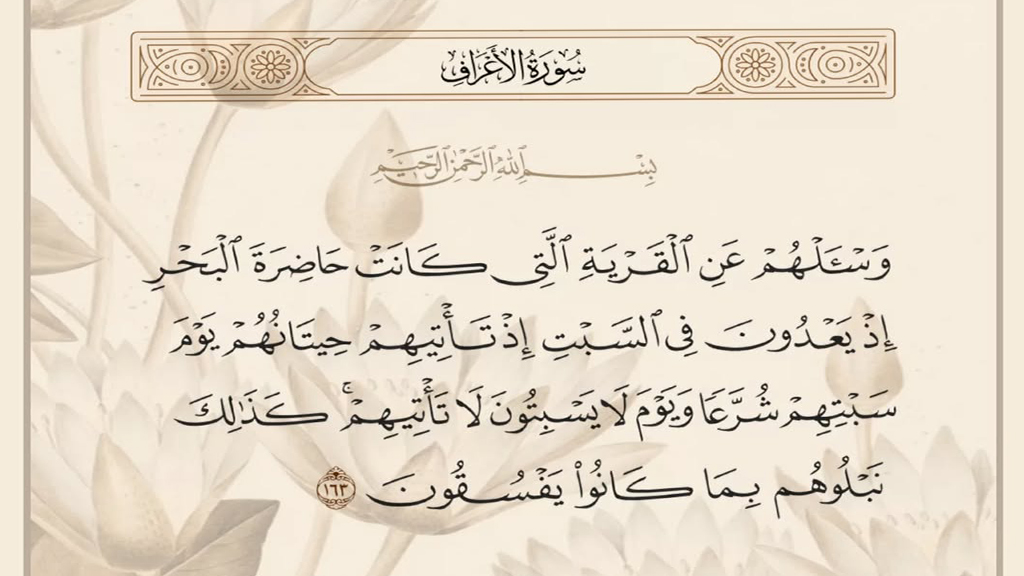 سُورَةُ الأَعۡرَافِ
بِسۡمِ ٱللَّهِ ٱلرَّحۡمَٰنِ ٱلرَّحِيمِ
وَسۡـَٔلۡهُمۡ عَنِ ٱلۡقَرۡيَةِ ٱلَّتِي كَانَتۡ حَاضِرَةَ ٱلۡبَحۡرِ
إِذۡ يَعۡدُونَ فِي ٱلسَّبۡتِ إِذۡ تَأۡتِيهِمۡ حِيتَانُهُمۡ يَوۡمَ
سَبۡتِهِمۡ شُرَّعٗا وَيَوۡمَ لَا يَسۡبِتُونَ لَا تَأۡتِيهِمۡۚ كَذَٰلِكَ
نَبۡلُوهُم بِمَا كَانُواْ يَفۡسُقُونَ ١٦٣